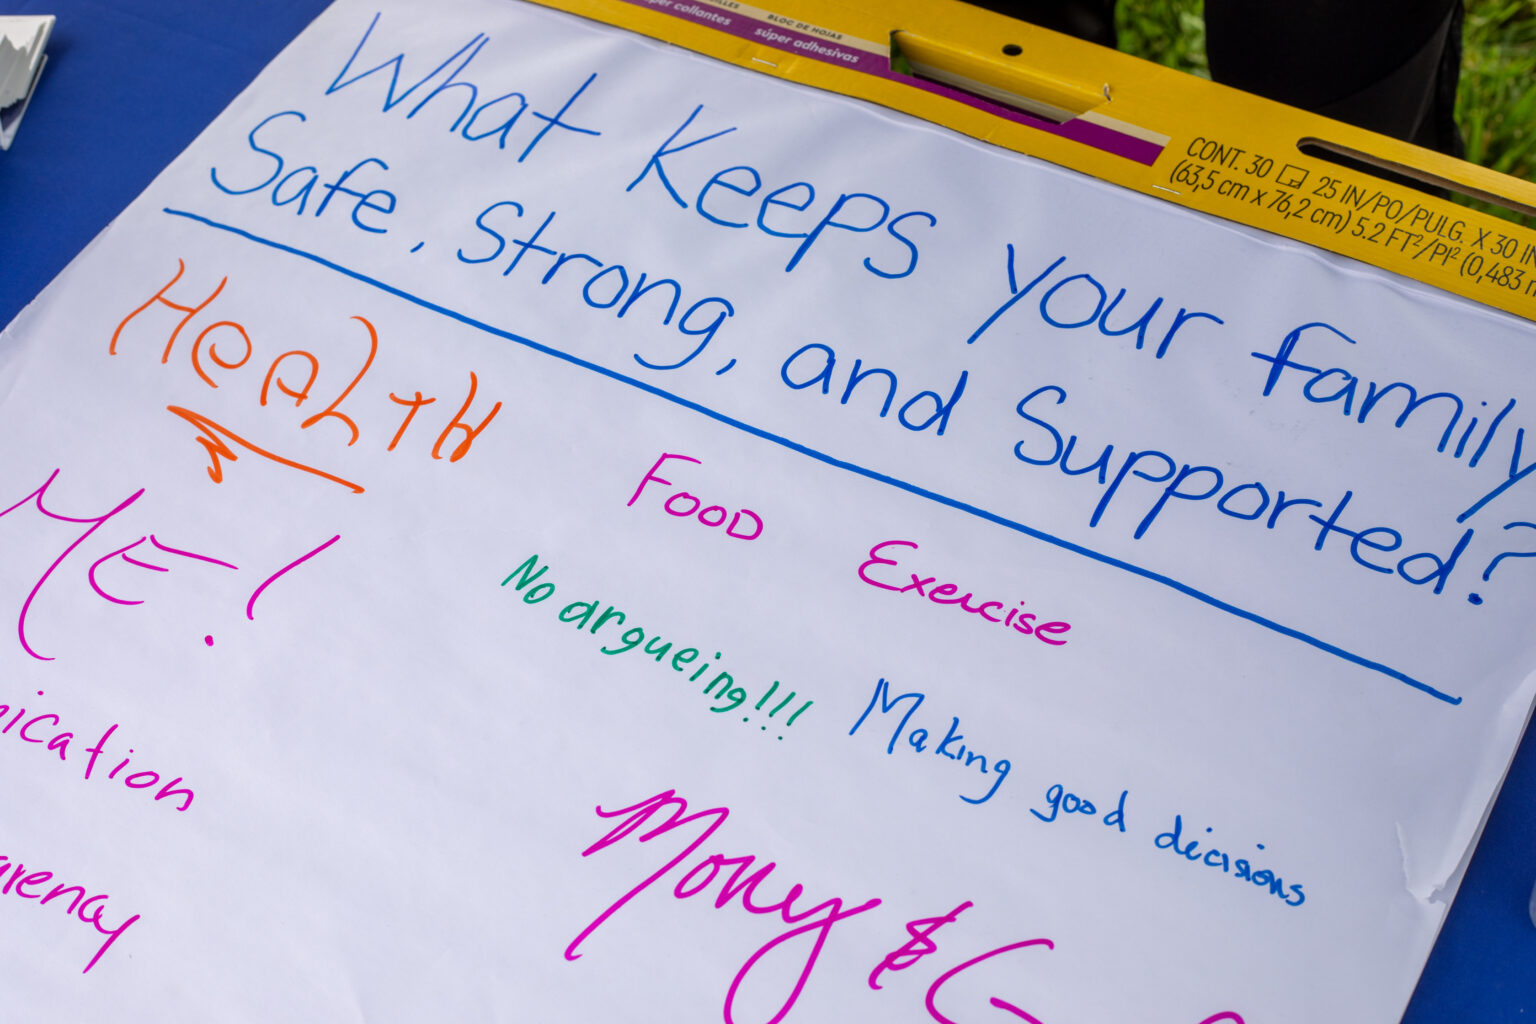 súper adhesivas
BLOC DE HOJAS
CONT. 30 25 IN/PO/PULG. X 30 IN
(63,5 cm x 76,2 cm) 5.2 FT²/PI² (0,483 m
What Keeps your family
Safe, Strong, and Supported?
HeALTH
Food
Exercise
ME!
No argueing!!!
Making good decisions
nication
Money &